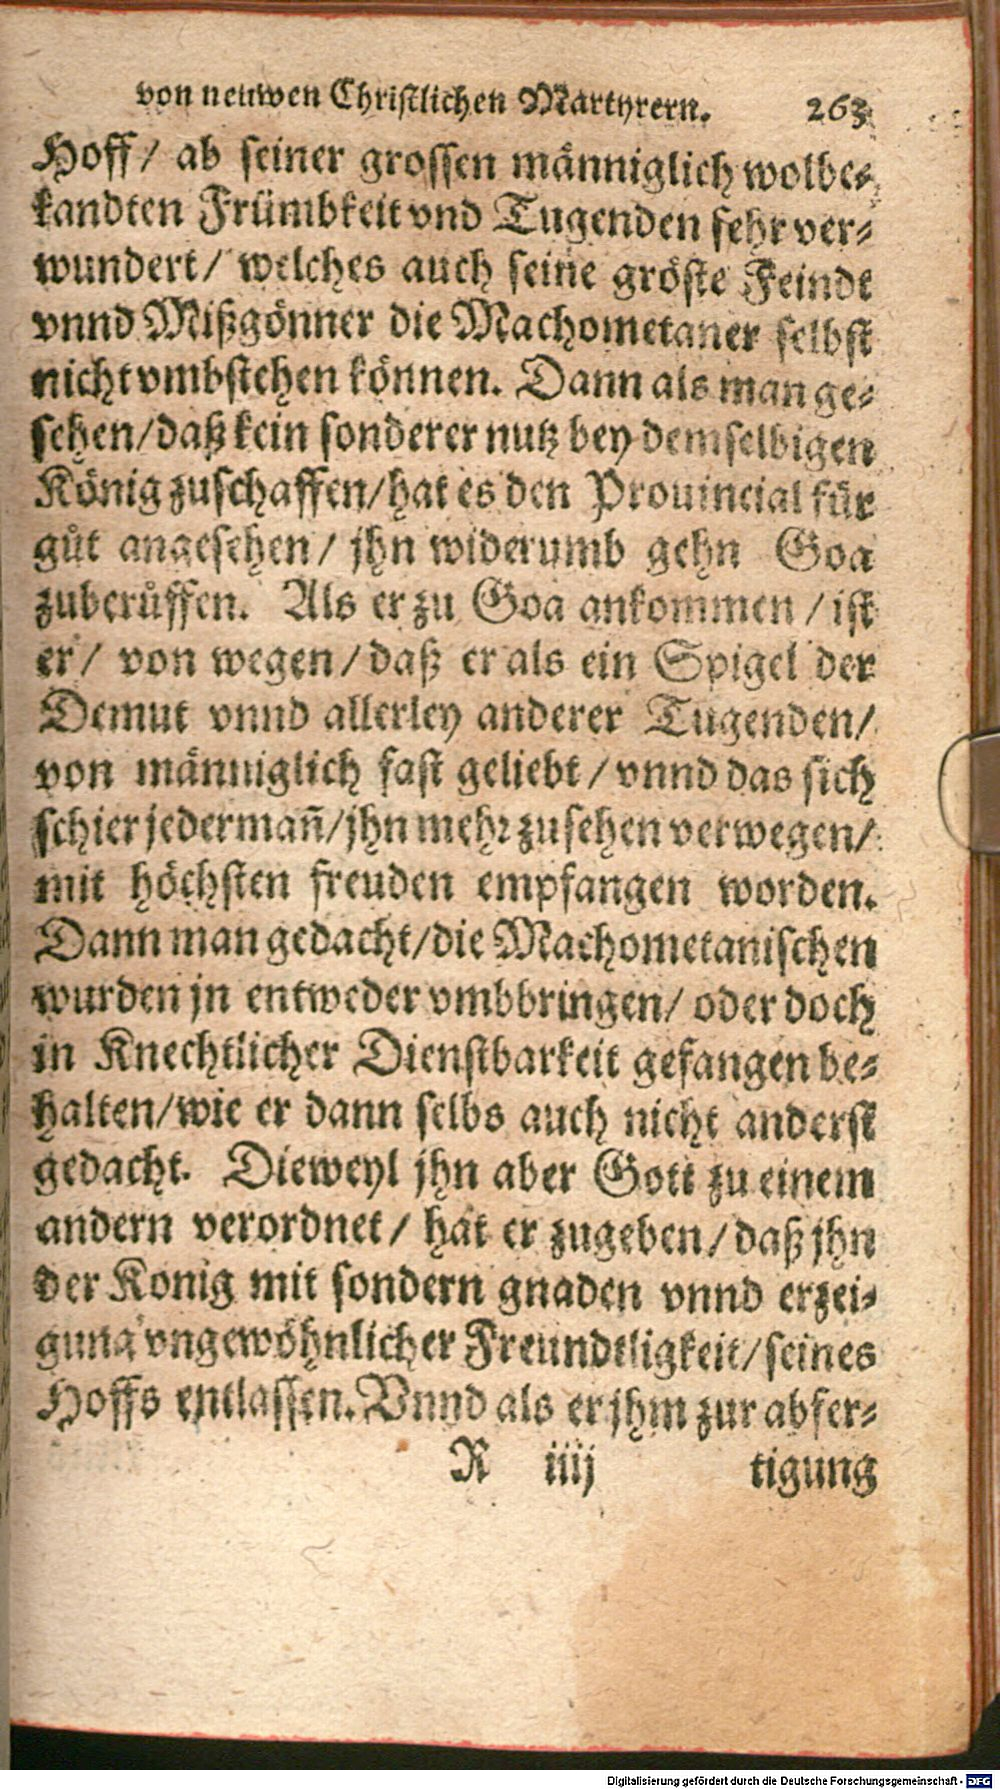 von neuwen Christlichen Martyrern. 263
Hoff/ ab seiner grossen männiglich wolbe⸗
kandten Frümbkeit vnd Tugenden sehr ver⸗
wundert/ welches auch seine gröste Feinde
vnnd Mißgönner die Machometaner selbst
nicht vmbstehen können. Dann als man ge⸗
sehen/daß kein sonderer nutz bey demselbigen
König zuschaffen/hat es den Prouincial für
gůt angesehen/ jhn widerumb gehn Goa
zuberůffen. Als er zu Goa ankommen/ist
er/ von wegen/daß er als ein Spigel der
Demut vnnd allerley anderer Tugenden/
von männiglich fast geliebt/vnnd das sich
schier jedermañ/jhn mehr zusehen verwegen/
mit höchsten freuden empfangen worden.
Dann man gedacht/die Machometanischen
wurden jn entweder vmbbringen/ oder doch
in Knechtlicher Dienstbarkeit gefangen be⸗
halten/wie er dann selbs auch nicht anderst
gedacht. Dieweyl jhn aber Gott zu einem
andern verordnet/ hat er zugeben/daß jhn
der Konig mit sondern gnaden vnnd erzei⸗
gung vngewöhnlicher Freundtligkeit/seines
Hoffs entlassen. Vnnd als er jhm zur abfer⸗
R iiij tigung
Digitalisierung gefördert durch die Deutsche Forschungsgemeinschaft - DFG